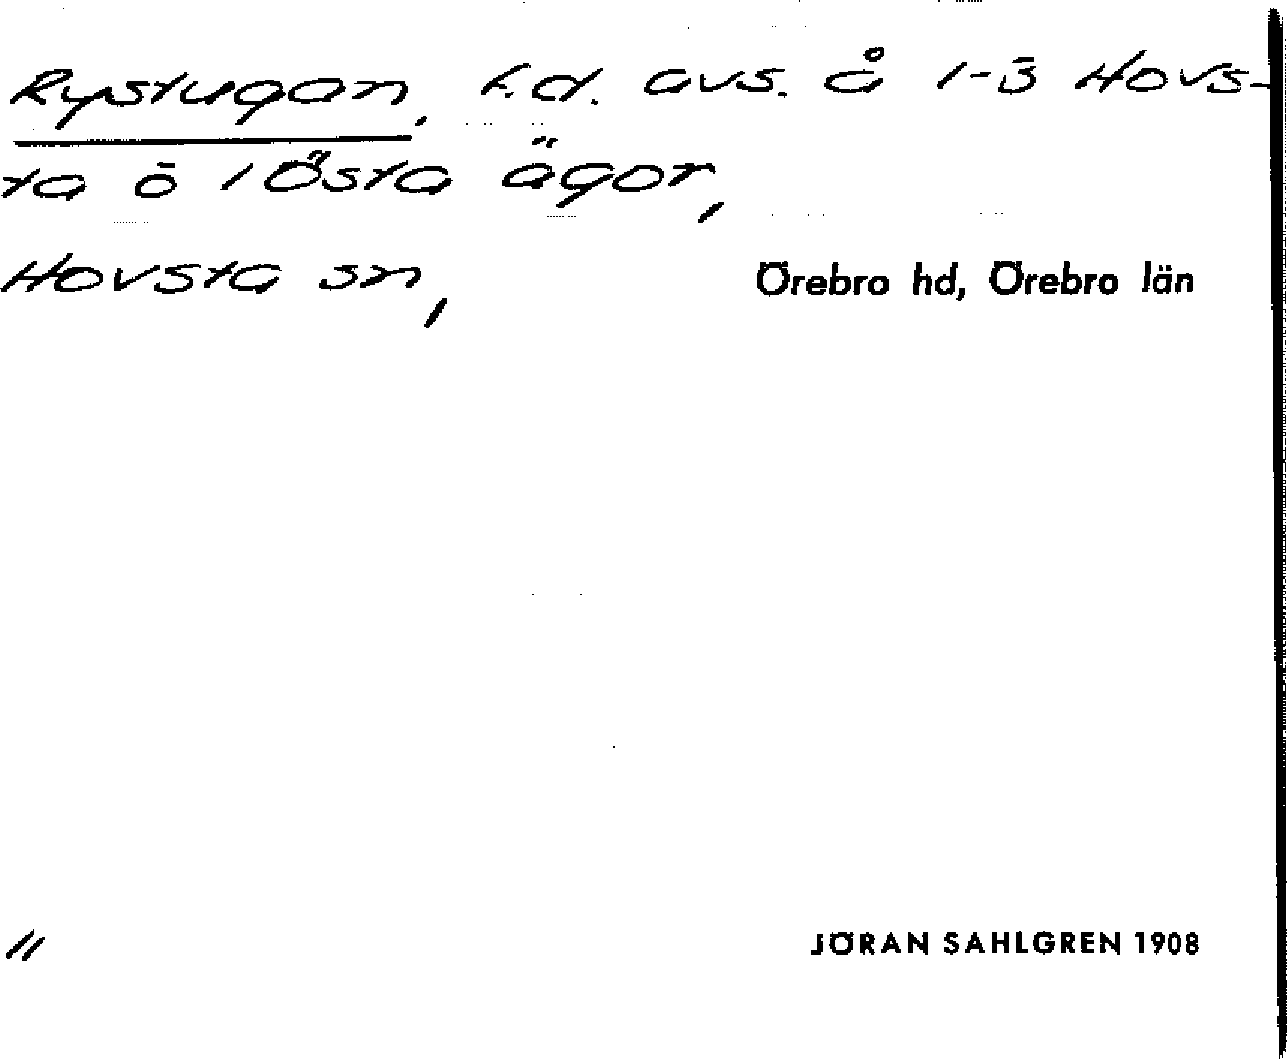 Rystugan, f.d. avs. å 1-3 Hovs-
ta o 1 Östa ägor,
Hovsta sn,
Örebro hd, Örebro län
11
JÖRAN SAHLGREN 1908